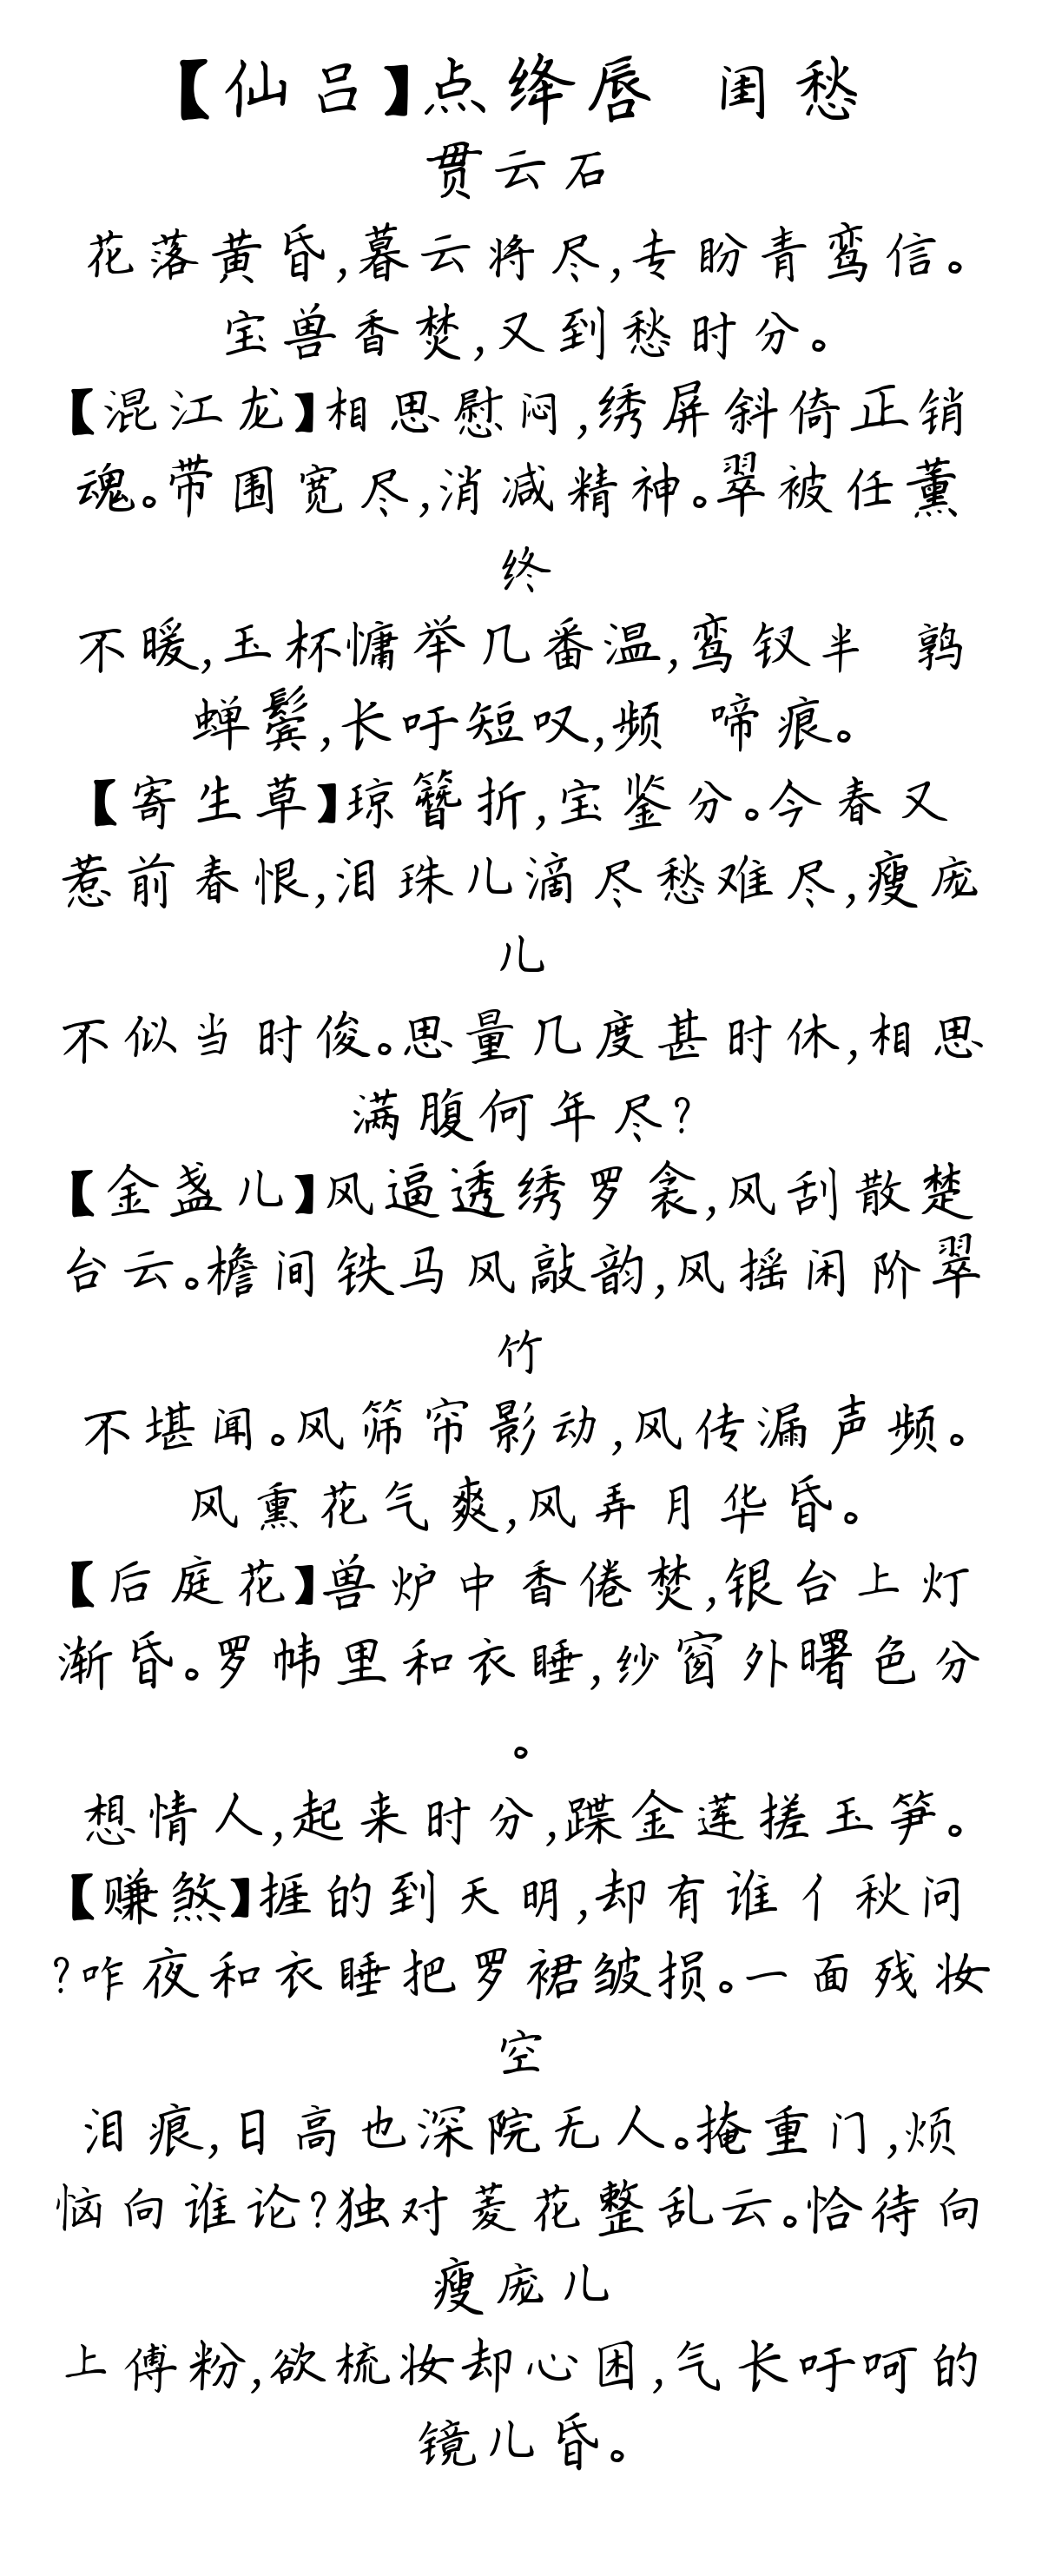 【仙吕】点绛唇 闺愁
贯云石
花落黄昏,暮云将尽,专盼青鸾信。
宝兽香焚,又到愁时分。
【混江龙】相思慰闷,绣屏斜倚正销
魂。带围宽尽,消减精神。翠被任薰
终
不暖,玉杯慵举几番温,鸾钗半 鹑
蝉鬓,长吁短叹,频 啼痕。
【寄生草】琼簪折,宝鉴分。今春又
惹前春恨,泪珠儿滴尽愁难尽,瘦庞
儿
不似当时俊。思量几度甚时休,相思
满腹何年尽?
【金盏儿】风逼透绣罗衾,风刮散楚
台云。檐间铁马风敲韵,风摇闲阶翠
竹
不堪闻。风筛帘影动,风传漏声频。
风熏花气爽,风弄月华昏。
【后庭花】兽炉中香倦焚,银台上灯
渐昏。罗帏里和衣睡,纱窗外曙色分
。
想情人,起来时分,蹀金莲搓玉笋。
【赚煞】捱的到天明,却有谁亻秋问
?咋夜和衣睡把罗裙皱损。一面残妆
空
泪痕,日高也深院无人。掩重门,烦
恼向谁论?独对菱花整乱云。恰待向
瘦庞儿
上傅粉,欲梳妆却心困,气长吁呵的
镜儿昏。